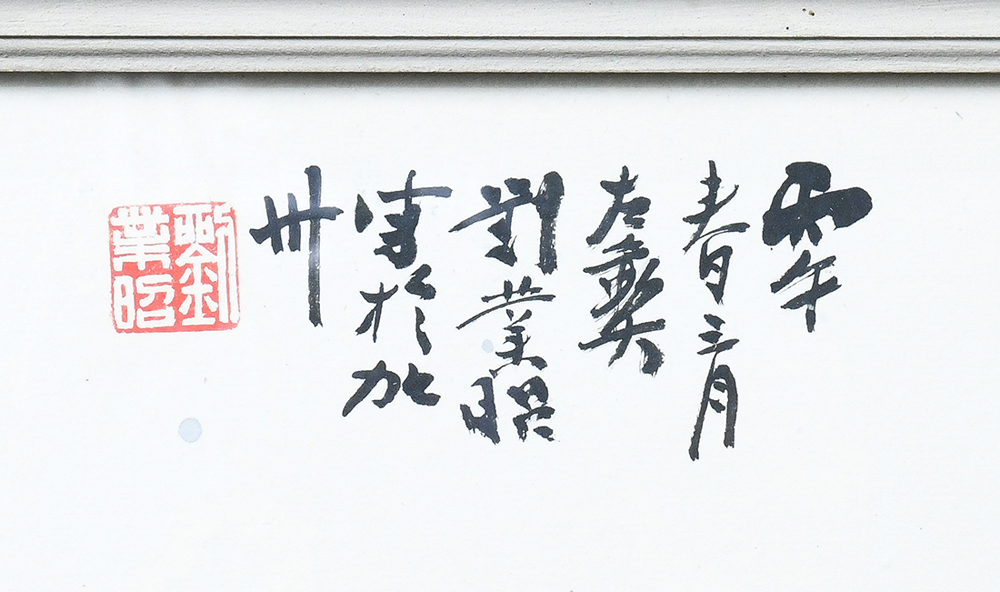 丙午
春三月
左軚
劉業昭
寫於加
州
劉業昭